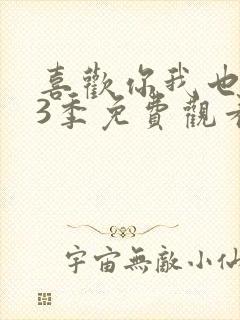 喜歡你我也
3季免費觀看
宇宙無敵小仙